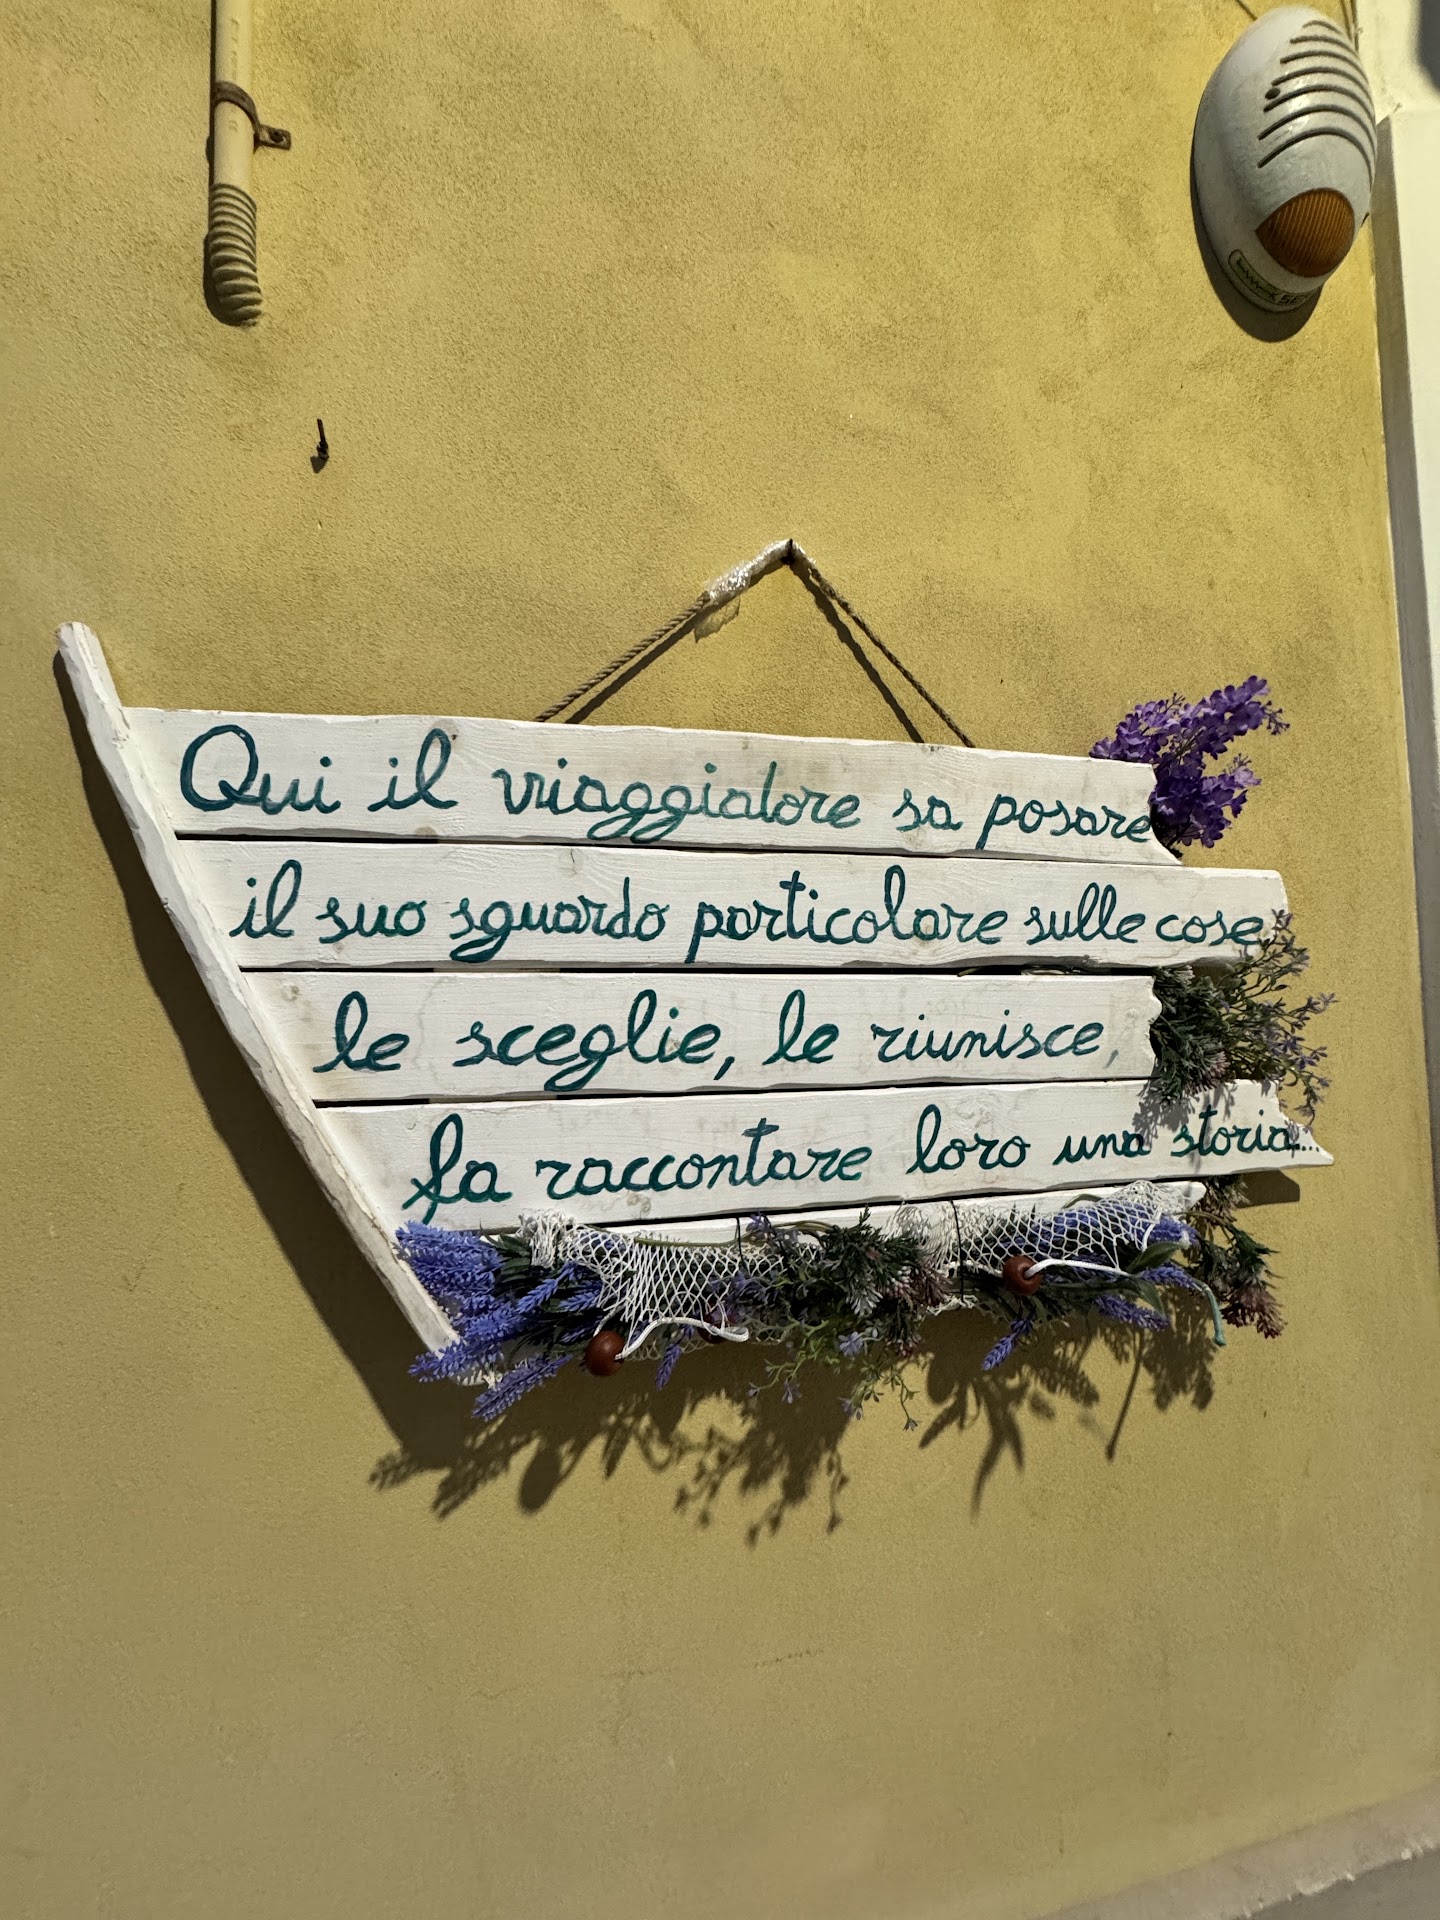 Qui il viaggiatore sa posare
il suo sguardo particolare sulle cose
le sceglie, le riunisce,
fa raccontare loro una storia...